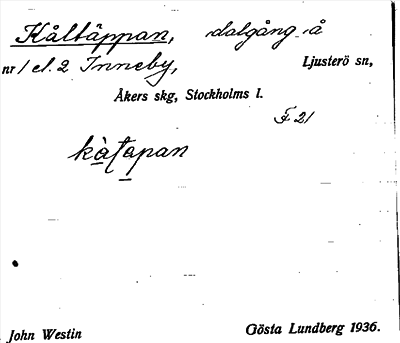 Kåltäppan, dalgång å
nr 1 el. 2 Inneby, Ljusterö sn,
Åkers skg, Stockholms l.
F 21
kàtapan
John Westin Gösta Lundberg 1936.